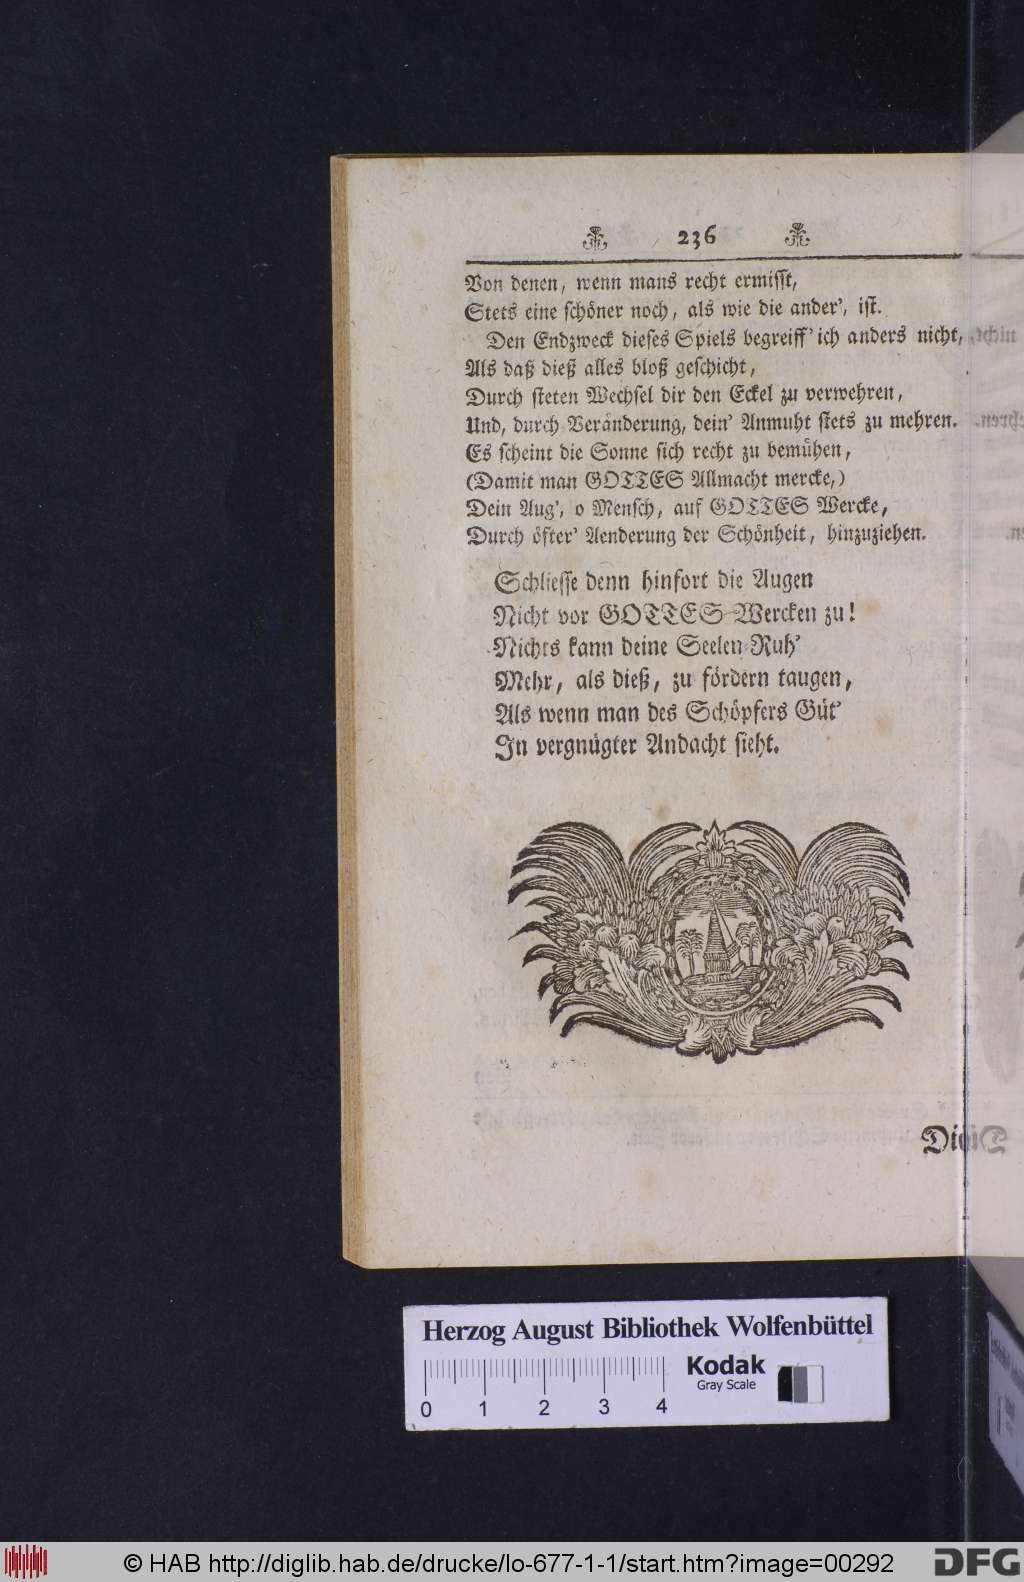 236
Von denen, wenn mans recht ermisst,
Stets eine schöner noch, als wie die ander', ist.
Den Endzweck dieses Spiels begreiff' ich anders nicht,
Als daß dieß alles bloß geschicht,
Durch steten Wechsel dir den Eckel zu verwehren,
Und, durch Veränderung, dein' Anmuht stets zu mehren.
Es scheint die Sonne sich recht zu bemühen,
(Damit man GOTTES Allmacht mercke,)
Dein Aug', o Mensch, auf GOTTES Wercke,
Durch öfter' Aenderung der Schönheit, hinzuziehen.
Schliesse denn hinfort die Augen
Nicht vor GOTTES-Wercken zu!
Nichts kann deine Seelen-Ruh'
Mehr, als dieß, zu fördern taugen,
Als wenn man des Schöpfers Güt'
In vergnügter Andacht sieht.
Herzog August Bibliothek Wolfenbüttel
Kodak
Gray Scale
0 1 2 3 4
© HAB http://diglib.hab.de/drucke/lo-677-1-1/start.htm?image=00292
DFG